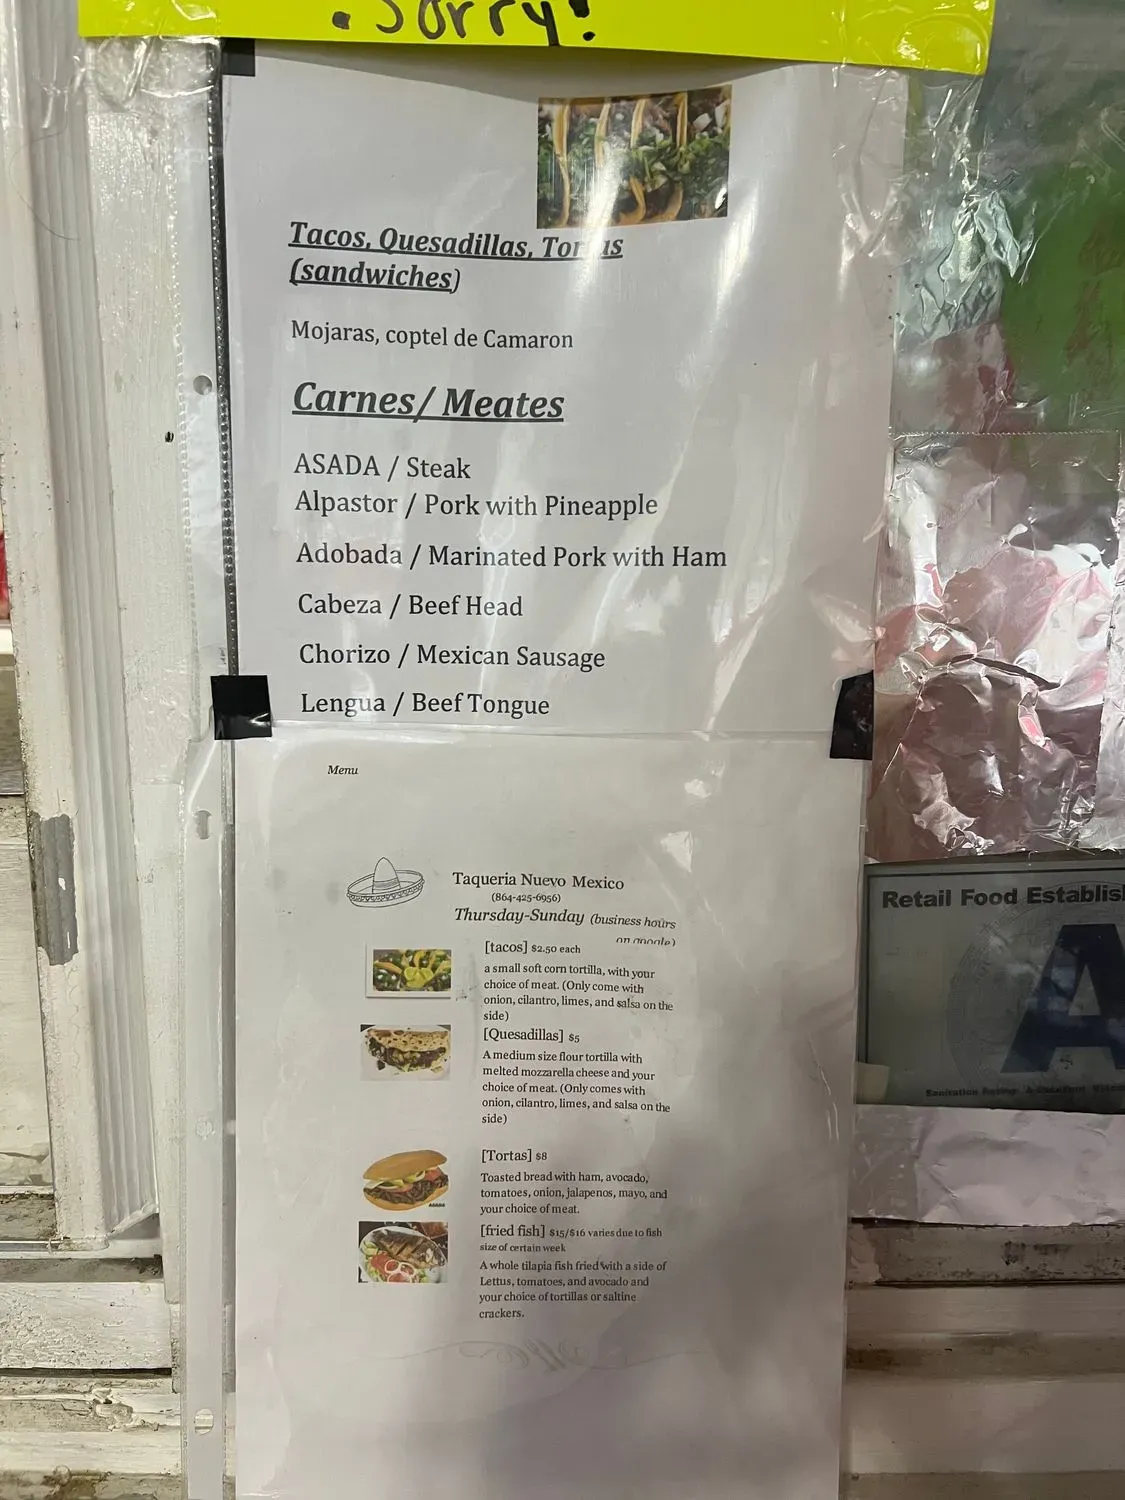 . Sorry!
Tacos, Quesadillas, Tortas
(sandwiches)
Mojaras, coptel de Camaron
Carnes/ Meates
ASADA / Steak
Alpastor / Pork with Pineapple
Adobada / Marinated Pork with Ham
Cabeza / Beef Head
Chorizo / Mexican Sausage
Lengua / Beef Tongue
Menu
Taqueria Nuevo Mexico
(864-425-6956)
Thursday-Sunday (business hours
on google)
[tacos] $2.50 each
a small soft corn tortilla, with your
choice of meat. (Only come with
onion, cilantro, limes, and salsa on the
side)
[Quesadillas] $5
A medium size flour tortilla with
melted mozzarella cheese and your
choice of meat. (Only comes with
onion, cilantro, limes, and salsa on the
side)
[Tortas] $8
Toasted bread with ham, avocado,
tomatoes, onion, jalapenos, mayo, and
your choice of meat.
ASADA
[fried fish] $15/$16 varies due to fish
size of certain week
A whole tilapia fish fried with a side of
Lettus, tomatoes, and avocado and
your choice of tortillas or saltine
crackers.
Retail Food Establis
A
Sanitation Rating: A Excellent